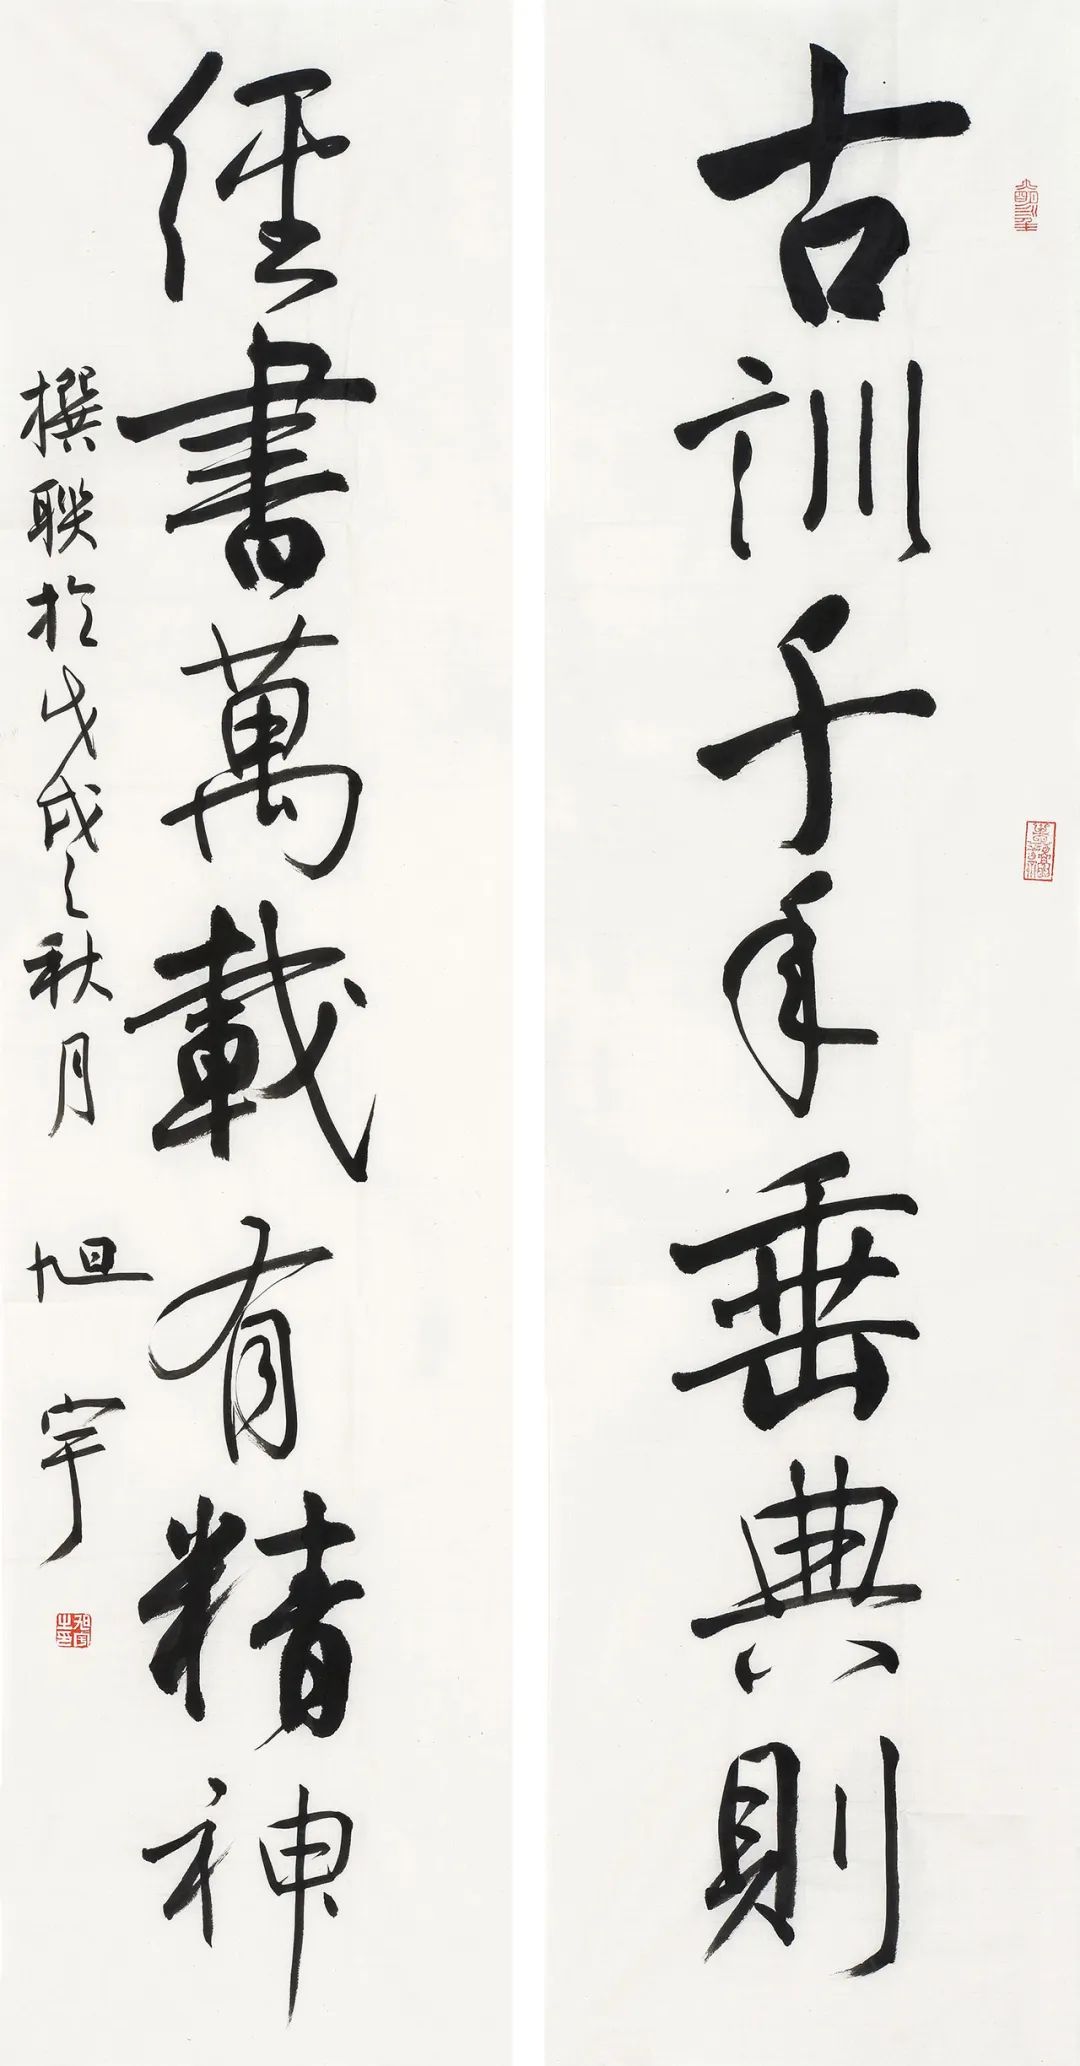 古訓千年垂典則
經書萬載有精神
撰聯於戊戌之秋月 旭宇
旭宇之印